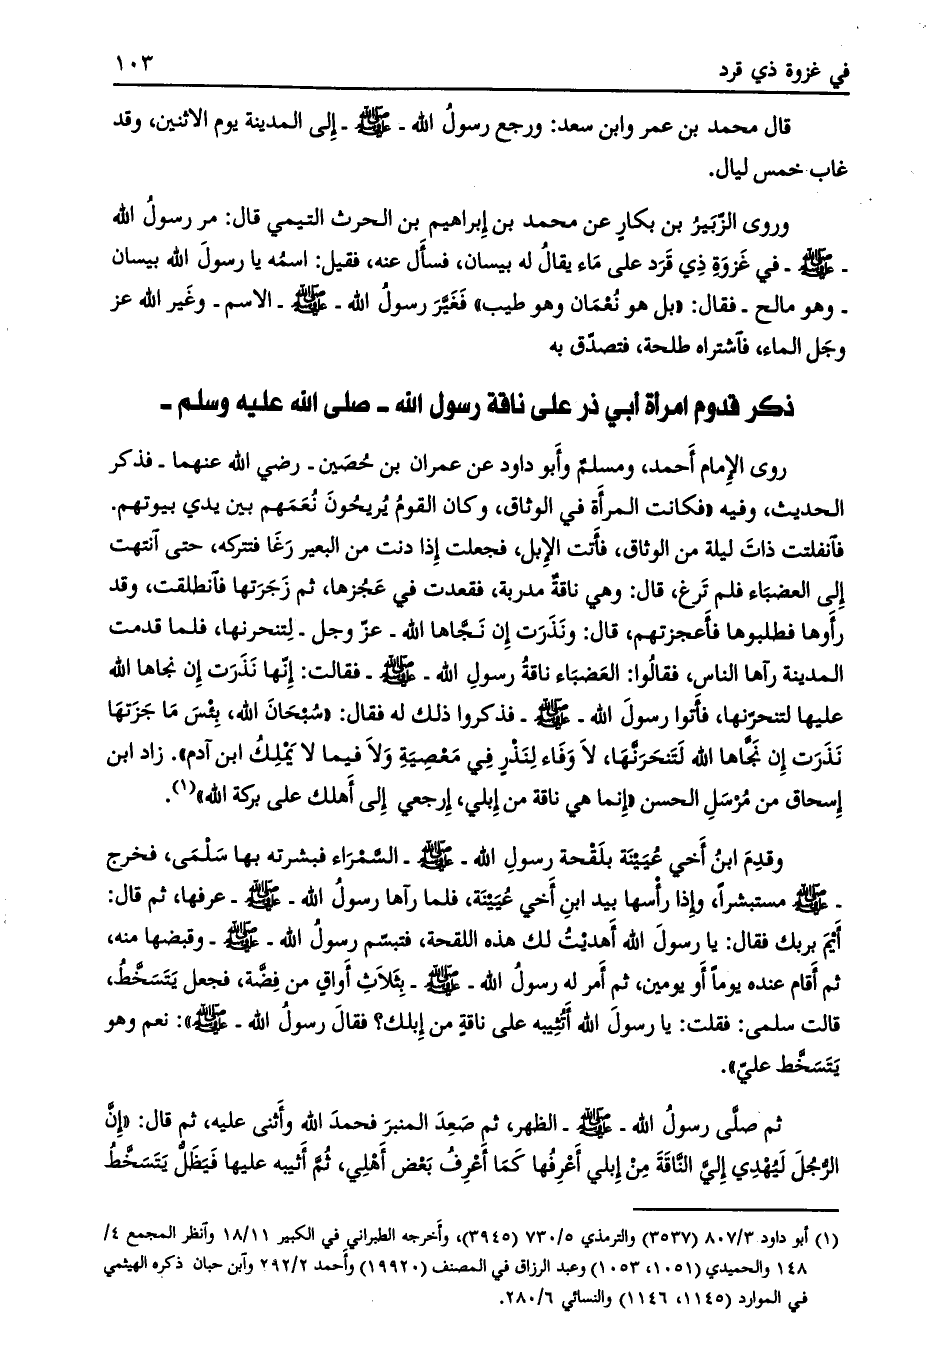 في غزوة ذي قرد ١٠٣
قال محمد بن عمر وابن سعد: ورجع رسولُ الله ـ ﷺ ـ إلى المدينة يوم الاثنين، وقد
غاب خمس ليال.
وروى الزّبَيرُ بن بكارٍ عن محمد بن إبراهيم بن الحرث التيمي قال: مر رسولُ الله
ـ ﷺ ـ في غَزوَةِ ذِي قَرَد على مَاء يقالُ له بيسان، فسأل عنه، فقيل: اسمُه يا رسولَ الله بيسان
ـ وهو مالح ـ فقال: «بل هو نُعْمَان وهو طيب» فَغَيَّرَ رسولُ الله ـ ﷺ ـ الاسم ـ وغَير الله عز
وجَل الماء، فآشتراه طلحة، فتصدّق به
ذكر قدوم امرأة أبي ذر على ناقة رسول الله ـ صلى الله عليه وسلم ـ
روى الإمام أَحمد، ومسلمٌ وأَبو داود عن عمران بن حُصَين ـ رضي الله عنهما ـ فذكر
الحديث، وفيه «فكانت المرأَة في الوثاق، وكان القومُ يُرِيحُونَ نُعَمَهم بين يدي بيوتهم.
فآنفلتت ذاتَ ليلة من الوثاق، فأَتت الإبل، فجعلت إذا دنت من البعير رَغَا فتتركه، حتى آنتهت
إلى العضبَاء فلم تَرغ، قال: وهي ناقةٌ مدربة، فقعدت في عَجُزها، ثم زَجَرَتها فآنطلقت، وقد
رأَوها فطلبوها فأَعجزتهم، قال: ونَذَرَت إن نَجَّاها الله ـ عزّ وجل ـ لِتنحرنها، فلما قدمت
المدينة رآها الناس، فقالُوا: العَضبَاء ناقةُ رسولِ الله ـ ﷺ ـ فقالت: إنّها نَذَرَت إن نجاها الله
عليها لتنحرّنها، فأَتوا رسولَ الله ـ ﷺ ـ فذكروا ذلك له فقال: «سُبْحَانَ الله، بِئْسَ مَا جَزَتهَا
نَذَرَت إن نَجَّاها الله لَتَنحَرَنَّهَا، لاَ وَفَاء لِنَذْرٍ فِي مَعْصِيَةِ وَلاَ فيما لا يَمْلِكُ ابن آدم». زاد ابن
إسحاق من مُرْسَلِ الحسن «إنما هي ناقة من إبلي، إرجعي إلى أَهلك على بركة الله»(١).
وقدِمَ ابنُ أَخي عُيَيْنَة بلَقْحة رسولِ الله ـ ﷺ ـ السَّمْرَاء فبشرته بها سَلْمَى، فخرج
ـ ﷺ مستبشراً، وإذا رأسها بيد ابنِ أَخي عُيَيْنَة، فلما رآها رسولُ الله ـ ﷺ ـ عرفها، ثم قال:
أَيْمَ بربك فقال: يا رسولَ الله أَهديْتُ لك هذه اللقحة، فتبسّم رسولُ الله ـ ﷺ ـ وقبضها منه،
ثم أَقام عنده يوماً أَو يومين، ثم أَمر له رسولُ الله ـ ﷺ ـ بِثَلاَثِ أَواق من فِضَّة، فجعل يَتَسَخَّطُ،
قالت سلمى: فقلت: يا رسولَ الله أَتُثِيبه على ناقةٍ من إبلك؟ فقالَ رسولُ الله ـ ﷺ»: نعم وهو
يَتَسَخَّط عليّ».
ثم صلَّى رسولُ الله ـ ﷺ ـ الظهر، ثم صَعِدَ المنبرَ فحمدَ الله وأَثنى عليه، ثم قال: «إنَّ
الرَّجُلَ لَيُهْدِي إلَيَّ النَّاقَةَ مِنْ إبلي أَعْرِفُها كَمَا أَعْرِفُ بَعْض أَهْلِي، ثُمَّ أَثيبه عليها فَيَظَلُّ يَتَسَخَّطُ
(١) أبو داود ٨٠٧/٣ (٣٥٣٧) والترمذي ٧٣٠/٥ (٣٩٤٥)، وأَخرجه الطبراني في الكبير ١٨/١١ وآنظر المجمع ٤/
١٤٨ والحميدي (١٠٥١، ١٠٥٣) وعبد الرزاق في المصنف (١٩٩٢٠) وأَحمد ٢٩٢/٢ وآبن حبان ذكره الهيثمي
في الموارد (١١٤٥، ١١٤٦) والنسائي ٢٨٠/٦.